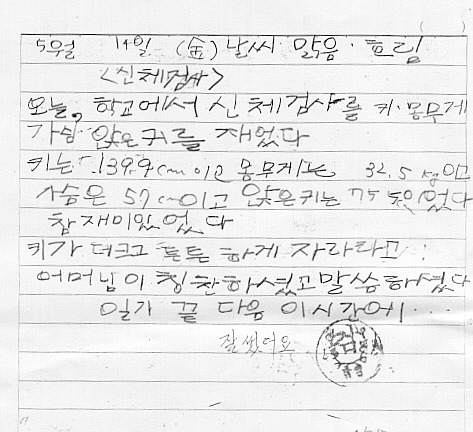 5월 14일 (金) 날씨 맑음·흐림
<신체검사>
오늘, 학교에서 신체검사를 키·몸무게
가슴 앉은키를 재었다
키는 139.9cm이고 몽무게는 32.5kg이고
가슴은 57cm이고 앉은키는 75 이었다
참 재미있었다
키가 더크고 튼튼 하게 자라라고
어머님이 칭찬하셨고말씀하셨다
일기 끝 다음 이시간에...
잘 썼어요